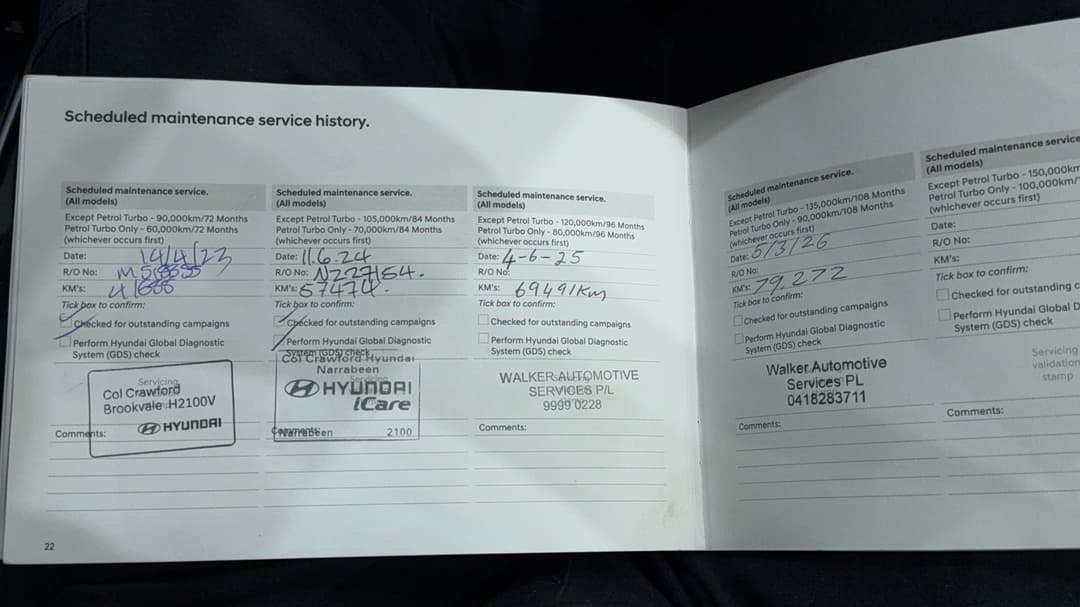 Scheduled maintenance service history.
Scheduled maintenance service.
(All models)
Except Petrol Turbo - 90,000km/72 Months
Petrol Turbo Only - 60,000km/72 Months
(whichever occurs first)
Date: 14/4/23
R/O No:
KM's:
Tick box to confirm:
Checked for outstanding campaigns
Perform Hyundai Global Diagnostic
System (GDS) check
Servicing
Col Crawford
Brookvale H2100V
HYUNDAI
Comments:
Scheduled maintenance service.
(All models)
Except Petrol Turbo - 105,000km/84 Months
Petrol Turbo Only - 70,000km/84 Months
(whichever occurs first)
Date: 11.6.24
R/O No: N227154.
KM's: 57474.
Tick box to confirm:
Checked for outstanding campaigns
Perform Hyundai Global Diagnostic
System (GDS) check
Col Crawford Hyundai
Narrabeen
Servicing
HYUNDAI
iCare
Comments:
Narrabeen 2100
Scheduled maintenance service.
(All models)
Except Petrol Turbo - 120,000km/96 Months
Petrol Turbo Only - 80,000km/96 Months
(whichever occurs first)
Date: 4-6-25
R/O No:
KM's: 69491Km
Tick box to confirm:
Checked for outstanding campaigns
Perform Hyundai Global Diagnostic
System (GDS) check
WALKER AUTOMOTIVE
SERVICES P/L
9999 0228
Comments:
22
Scheduled maintenance service.
(All models)
Except Petrol Turbo - 135,000km/108 Months
Petrol Turbo Only - 90,000km/108 Months
(whichever occurs first)
Date: 5/3/26
R/O No:
KM's: 79,272
Tick box to confirm:
Checked for outstanding campaigns
Perform Hyundai Global Diagnostic
System (GDS) check
Walker Automotive
Services PL
0418283711
Comments:
Scheduled maintenance service
(All models)
Except Petrol Turbo - 150,000km
Petrol Turbo Only - 100,000km/
(whichever occurs first)
Date:
R/O No:
KM's:
Tick box to confirm:
Checked for outstanding c
Perform Hyundai Global D
System (GDS) check
Servicing
validation
stamp
Comments: